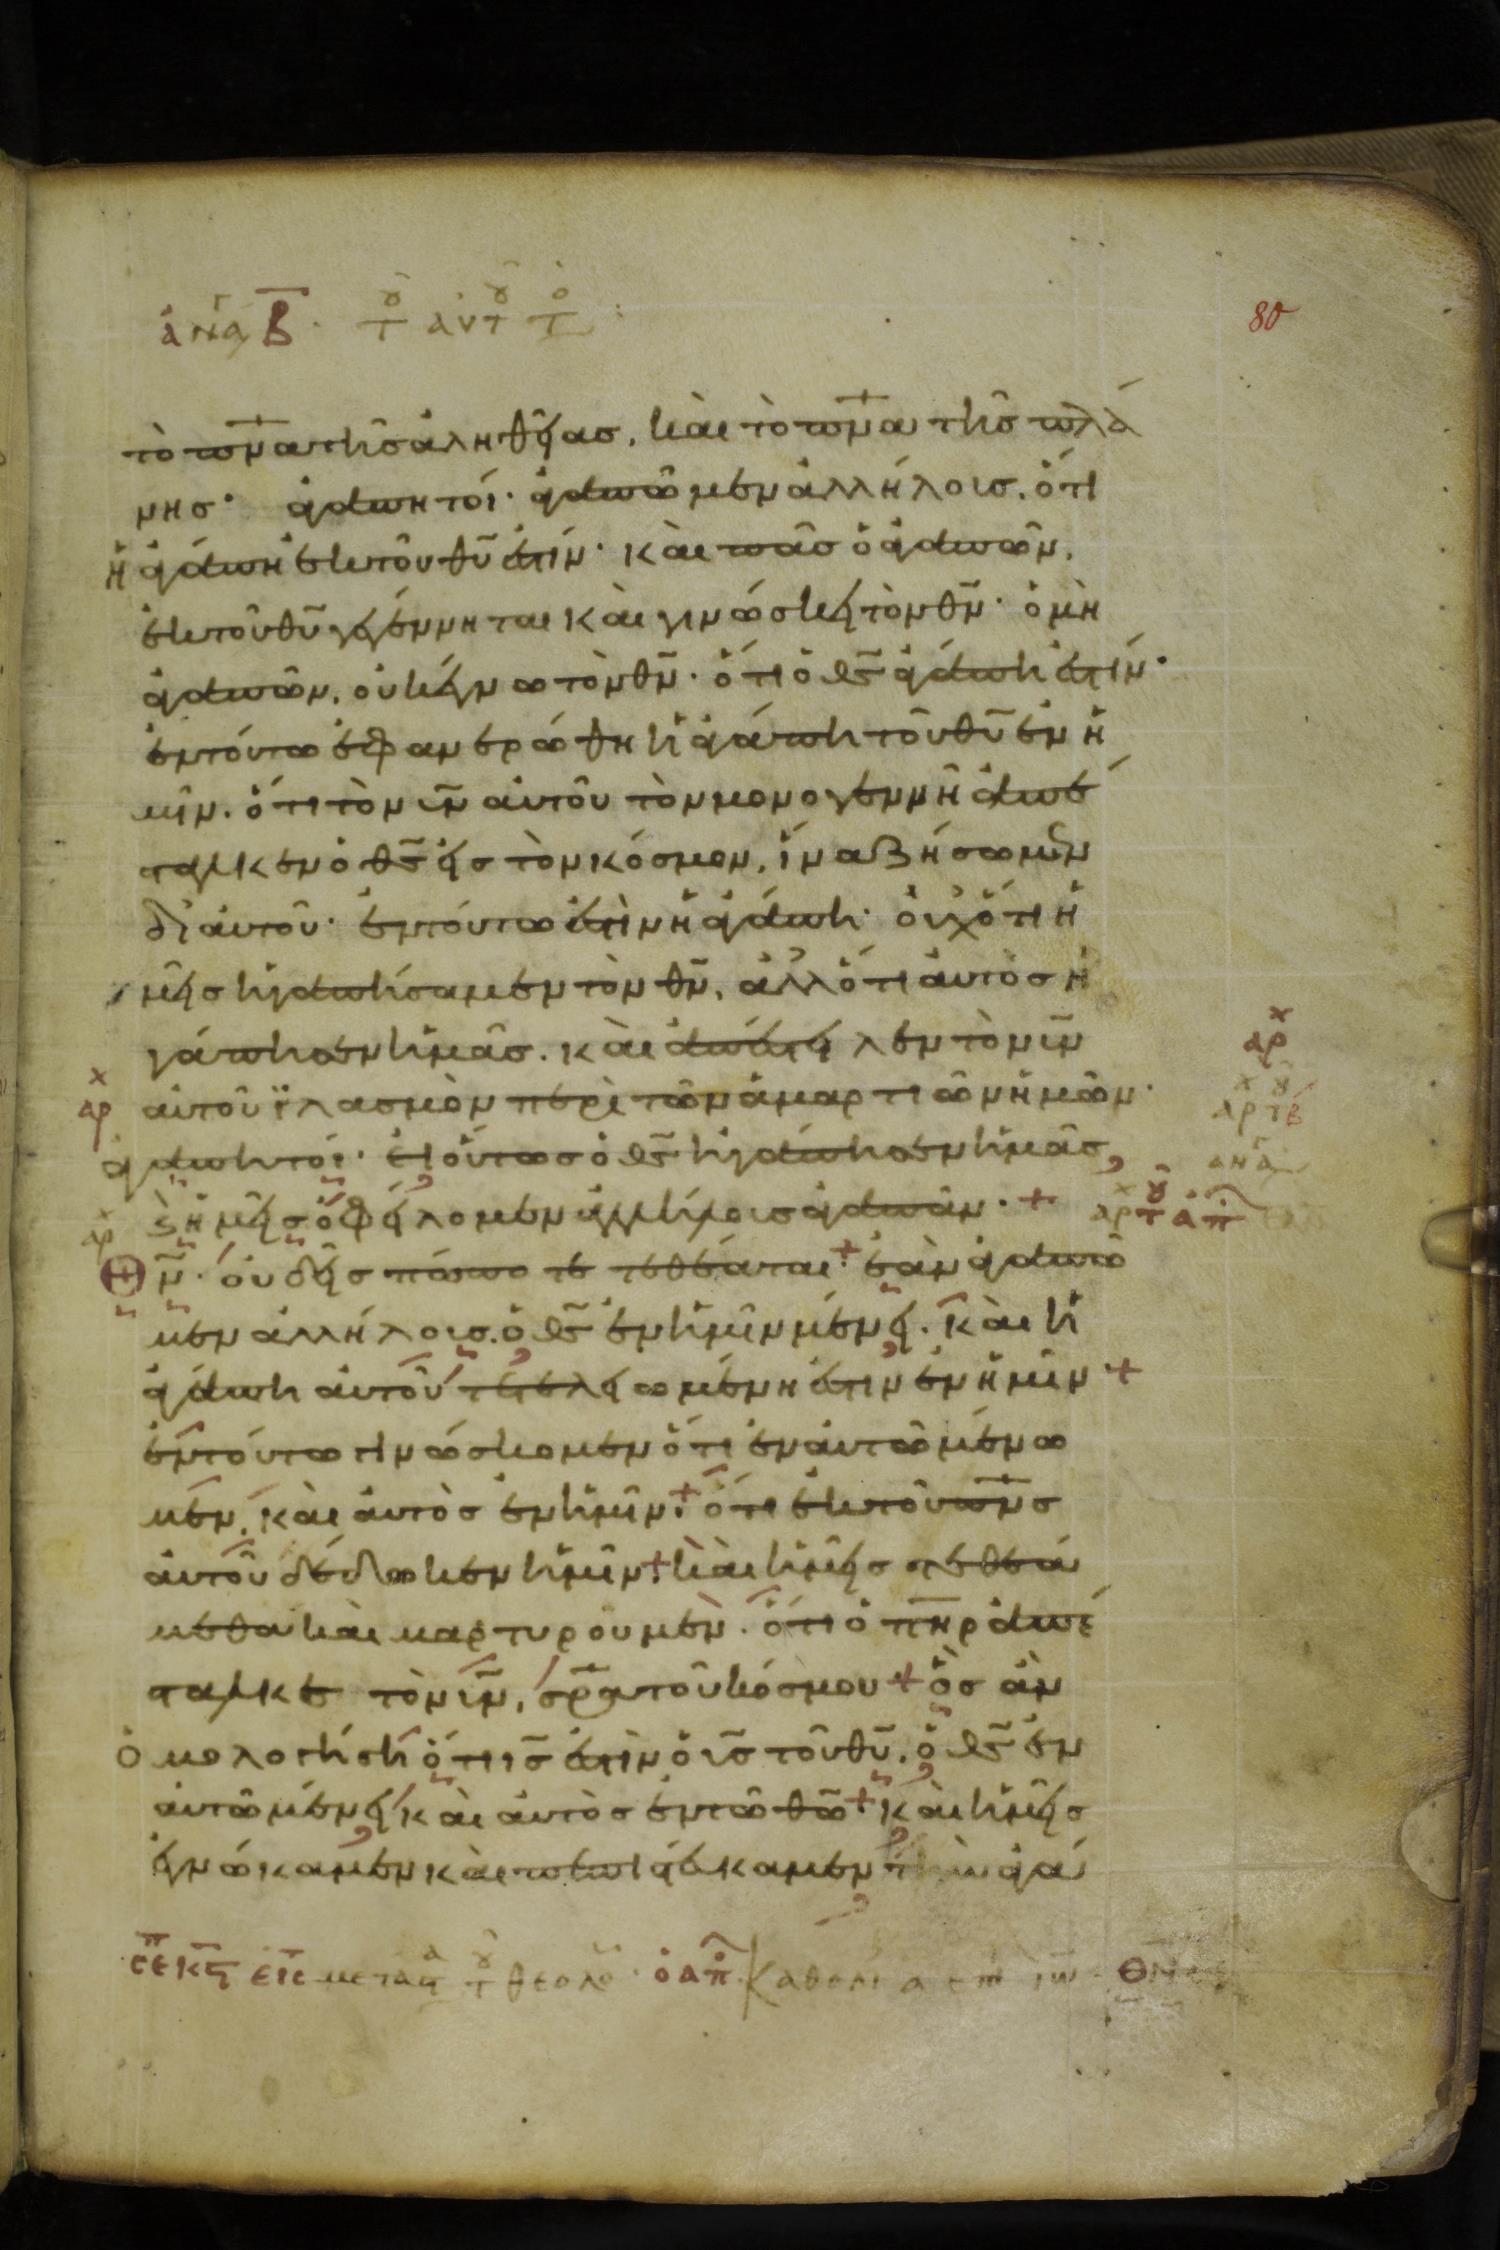 ἀνα Β τ αυτ τ
80
τὸ πνᾶ τῆς ἀληθείας, καὶ τὸ πνᾶ τῆς πλά
νης· ἀγαπητοί· ἀγαπῶμεν ἀλλήλοις, ὅτι
ἡ ἀγάπη ἐκ τοῦ θῦ ἐστίν· καὶ πᾶς ὁ ἀγαπῶν,
ἐκ τοῦ θῦ γεγέννηται καὶ γινώσκει τὸν θν̄· ὁ μὴ
ἀγαπῶν, οὐκ ἔγνω τὸν θν̄· ὅτι ὁ θς̄ ἀγάπη ἐστίν·
ἐν τούτω ἐφανερώθη ἡ ἀγάπη τοῦ θῦ ἐν ἡ
μῖν. ὅτι τὸν υν̄ αὐτοῦ τὸν μονογεννῆ ἀπέ
σταλκεν ὁ θς̄ εἰς τὸν κόσμον, ἵνα ζήσωμεν
δι αὐτοῦ· ἐν τούτω ἐστὶν ἡ ἀγάπη· οὐχ ὅτι ἡ
μεῖς ἠγαπήσαμεν τὸν θν̄, ἀλλ ὅτι αὐτὸς ἠ
γάπησεν ἡμᾶς. καὶ ἀπέστειλεν τὸν υν̄
αρ
αρ αὐτοῦ ἱλασμὸν περὶ τῶν ἁμαρτιῶν ἡμῶν·
αρ τ β
ἀγαπητοί· εἰ οὕτως ὁ θς̄ ἠγάπησεν ἡμᾶς,
ανα
ἡμεῖς ὀφείλομεν ἀλλήλοις ἀγαπᾶν· +
αρ τ απ
αρ
Θν̄· οὐδεὶς πώποτε τεθέαται + ἐὰν ἀγαπῶ
μεν ἀλλήλοις. ὁ θς̄ ἐν ἡμῖν μένει. καὶ ἡ
ἀγάπη αὐτοῦ τετελειωμένη ἐστιν ἐν ἡμῖν +
ἐν τούτω γινώσκομεν ὅτι ἐν αὐτῶ μένω
μεν, καὶ αὐτὸς ἐν ἡμῖν + ὅτι ἐκ τοῦ πνς̄
αὐτοῦ δέδωκεν ἡμῖν + καὶ ἡμεῖς τεθεά
μεθα καὶ μαρτυροῦμεν. ὅτι ὁ πηρ ἀπέ
σταλκε τὸν υν̄, σρ̄α τοῦ κόσμου + ὃς ἂν
ὁμολογήση ὅτι ις̄ ἐστὶν ὁ υς̄ τοῦ θῦ, ὁ θς̄ ἐν
αὐτῶ μένει καὶ αὐτὸς ἐν τῶ θῶ + καὶ ἡμεῖς
ἐγνώκαμεν καὶ πεπιστεύκαμεν τὴν ἀγά
εις μετας τ θεολο ὁ απ καθολι α επ ιω